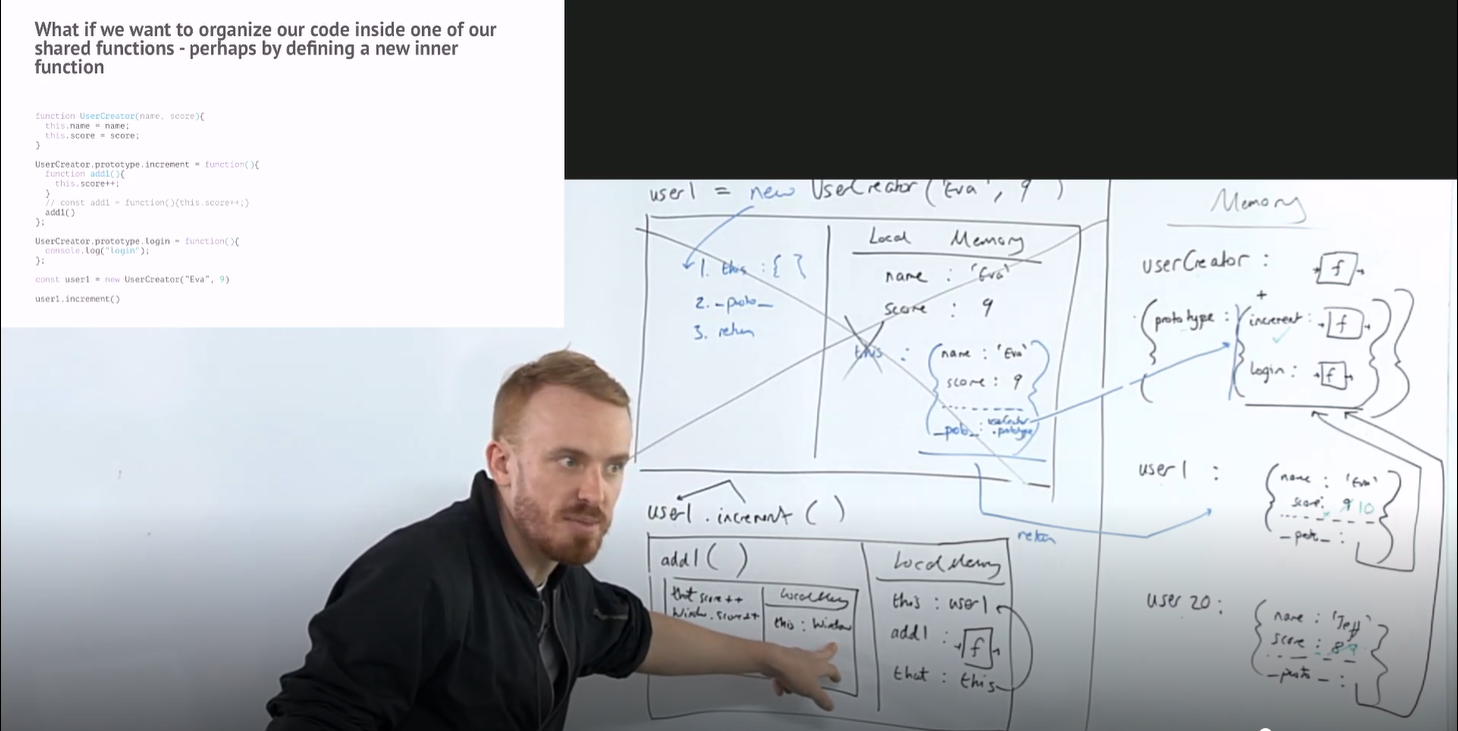 What if we want to organize our code inside one of our
shared functions - perhaps by defining a new inner
function
function UserCreator(name, score){
this.name = name;
this.score = score;
}
UserCreator.prototype.increment = function(){
function add1(){
this.score++;
}
// const add1 = function(){this.score++;}
add1()
};
UserCreator.prototype.login = function(){
console.log("login");
};
const user1 = new UserCreator("Eva", 9)
user1.increment()
user1 = new UserCreator('Eva', 9)
1. this : { }
2. _proto_
3. return
Local Memory
name : 'Eva'
score : 9
this :
name : 'Eva'
score : 9
_proto_ : userCreator
.prototype
return
user1.increment()
add1()
that score++
Window.score++
Local Mem
this : Window
Local Memory
this : user1
add1 : f
that : this
Memory
userCreator : f
+
{prototype : { increment : f
login : f }}
user1 :
{ name : 'Eva'
score : 9 10
_proto_ : }
user 20 :
{ name : 'Jeff'
score : 8 9
_proto_ : }